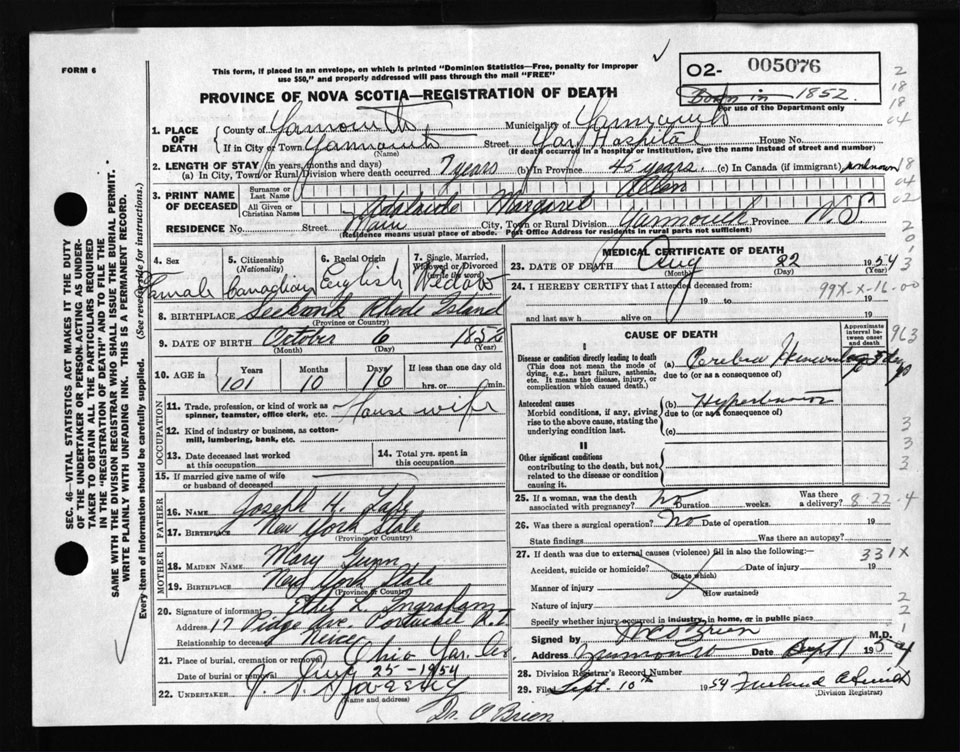 FORM 6
This form, if placed in an envelope, on which is printed "Dominion Statistics—Free, penalty for improper
use $50," and properly addressed will pass through the mail "FREE"
O2- 005076
Born in 1852.
For use of the Department only
PROVINCE OF NOVA SCOTIA—REGISTRATION OF DEATH
1. PLACE OF DEATH
County of Yarmouth Municipality of Yarmouth
If in City or Town Yarmouth (Name) Street Yar Hospital House No.
(If death occurred in a hospital or institution, give the name instead of street and number)
2. LENGTH OF STAY (in years, months and days)
(a) In City, Town or Rural Division where death occurred 7 years (b) In Province 45 years. (c) In Canada (if immigrant) unknown
3. PRINT NAME OF DECEASED
Surname or Last Name Allen
All Given or Christian Names Adelaide Margaret
RESIDENCE No. Street Main City, Town or Rural Division Yarmouth Province N.S.
(Residence means usual place of abode. Post Office Address for residents in rural parts not sufficient)
4. Sex Female
5. Citizenship (Nationality) Canadian
6. Racial Origin English
7. Single, Married, Widowed or Divorced (write the word) Widow
8. BIRTHPLACE Seekonk Rhode Island
(Province or Country)
9. DATE OF BIRTH October 6 1852
(Month) (Day) (Year)
10. AGE in Years 101 Months 10 Days 16 If less than one day old
hrs. or min.
OCCUPATION
11. Trade, profession, or kind of work as
spinner, teamster, office clerk, etc. House wife
12. Kind of industry or business, as cotton-
mill, lumbering, bank, etc.
13. Date deceased last worked
at this occupation
14. Total yrs. spent in
this occupation
15. If married give name of wife
or husband of deceased
FATHER
16. NAME Joseph H.
17. BIRTHPLACE New York State
(Province or Country)
MOTHER
18. MAIDEN NAME Mary Gunn
19. BIRTHPLACE New York State
(Province or Country)
20. Signature of informant L. Ingraham
Address 17 Ave. R.I.
Relationship to deceased Niece
21. Place of burial, cremation or removal Ohio Yar. Co.
Date of burial or removal Aug 25-1954
22. UNDERTAKER J.
(Name and address)
Dr. O'Brien.
MEDICAL CERTIFICATE OF DEATH
23. DATE OF DEATH Aug 22 1954
(Month) (Day) (Year)
24. I HEREBY CERTIFY that I attended deceased from
19 to 19
and last saw h alive on 19
99X-X-16-00
CAUSE OF DEATH
Approximate
interval be-
tween onset
and death
I
Disease or condition directly leading to death
(This does not mean the mode of
dying, e.g., heart failure, asthenia,
etc. It means the disease, injury, or
complication which caused death.)
(a)
due to (or as a consequence of)
Antecedent causes
Morbid conditions, if any, giving
rise to the above cause, stating the
underlying condition last.
(b)
due to (or as a consequence of)
(c)
II
Other significant conditions
contributing to the death, but not
related to the disease or condition
causing it.
25. If a woman, was the death
associated with pregnancy? no Duration weeks. Was there
a delivery? 8-22-4
26. Was there a surgical operation? No Date of operation 19
State findings Was there an autopsy?
27. If death was due to external causes (violence) fill in also the following: 331X
Accident, suicide or homicide? Date of injury 19
(State which)
Manner of injury
(How sustained)
Nature of injury
Specify whether injury occurred in industry, in home, or in public place
Signed by O'Brien M.D.
Address Yarmouth Date Sept 1 1954
28. Division Registrar's Record Number
29. Filed Sept. 10th 1954
(Division Registrar)
SEC. 46—VITAL STATISTICS ACT MAKES IT THE DUTY
OF THE UNDERTAKER OR PERSON ACTING AS UNDER-
TAKER TO OBTAIN ALL THE PARTICULARS REQUIRED
IN THE "REGISTRATION OF DEATH" AND TO FILE THE
SAME WITH THE DIVISION REGISTRAR WHO SHALL ISSUE THE BURIAL PERMIT.
WRITE PLAINLY WITH UNFADING INK. THIS IS A PERMANENT RECORD.
Every item of information should be carefully supplied. (See reverse side for instructions.)